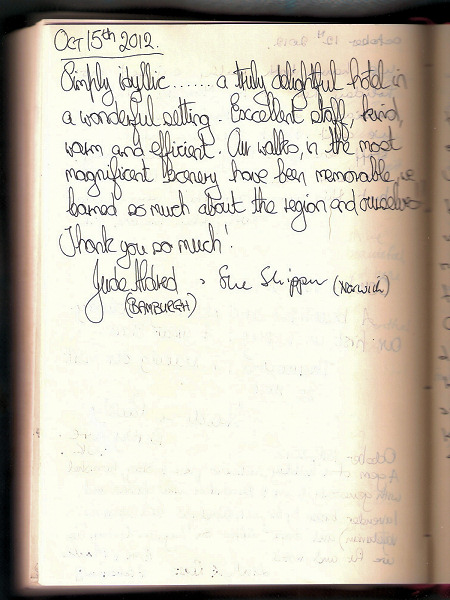 Oct 15th 2012.
Simply idyllic...... a truly delightful hotel in
a wonderful setting. Excellent staff, kind,
warm and efficient. Our walks, in the most
magnificent scenery have been memorable, we
learned so much about the region and ourselves.
Thank you so much!
Jude Aldred , Sue Skipper (Norwich)
(BAMBURGH)